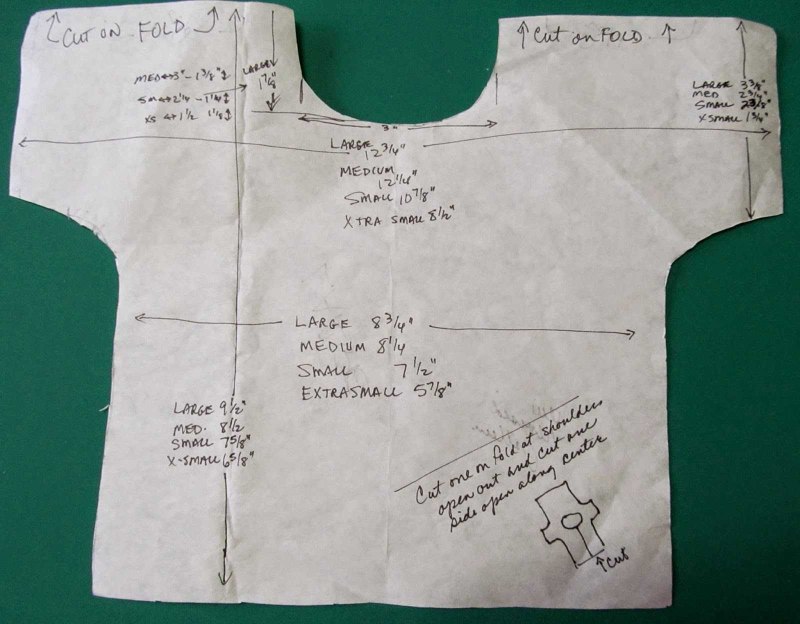 Cut on FOLD
Cut on FOLD
LARGE
1 7/8"
MED ↔ 3" - 1 3/8" ↕
SM ↔ 2 1/4 - 1 1/4 ↕
XS ↔ 1 1/2 1 1/8 ↕
LARGE 3 3/8"
MED 2 3/4"
SMALL 2 3/8"
XSMALL 1 3/4"
3"
LARGE
12 3/4"
MEDIUM
12 1/4"
SMALL 10 7/8"
XTRA SMALL 8 1/2"
LARGE 8 3/4"
MEDIUM 8 1/4
SMALL 7 1/2"
EXTRASMALL 5 7/8"
LARGE 9 1/2"
MED. 8 1/2
SMALL 7 5/8"
X-SMALL 6 5/8"
Cut one on fold at shoulders
open out and cut one
side open along center
↑ Cut